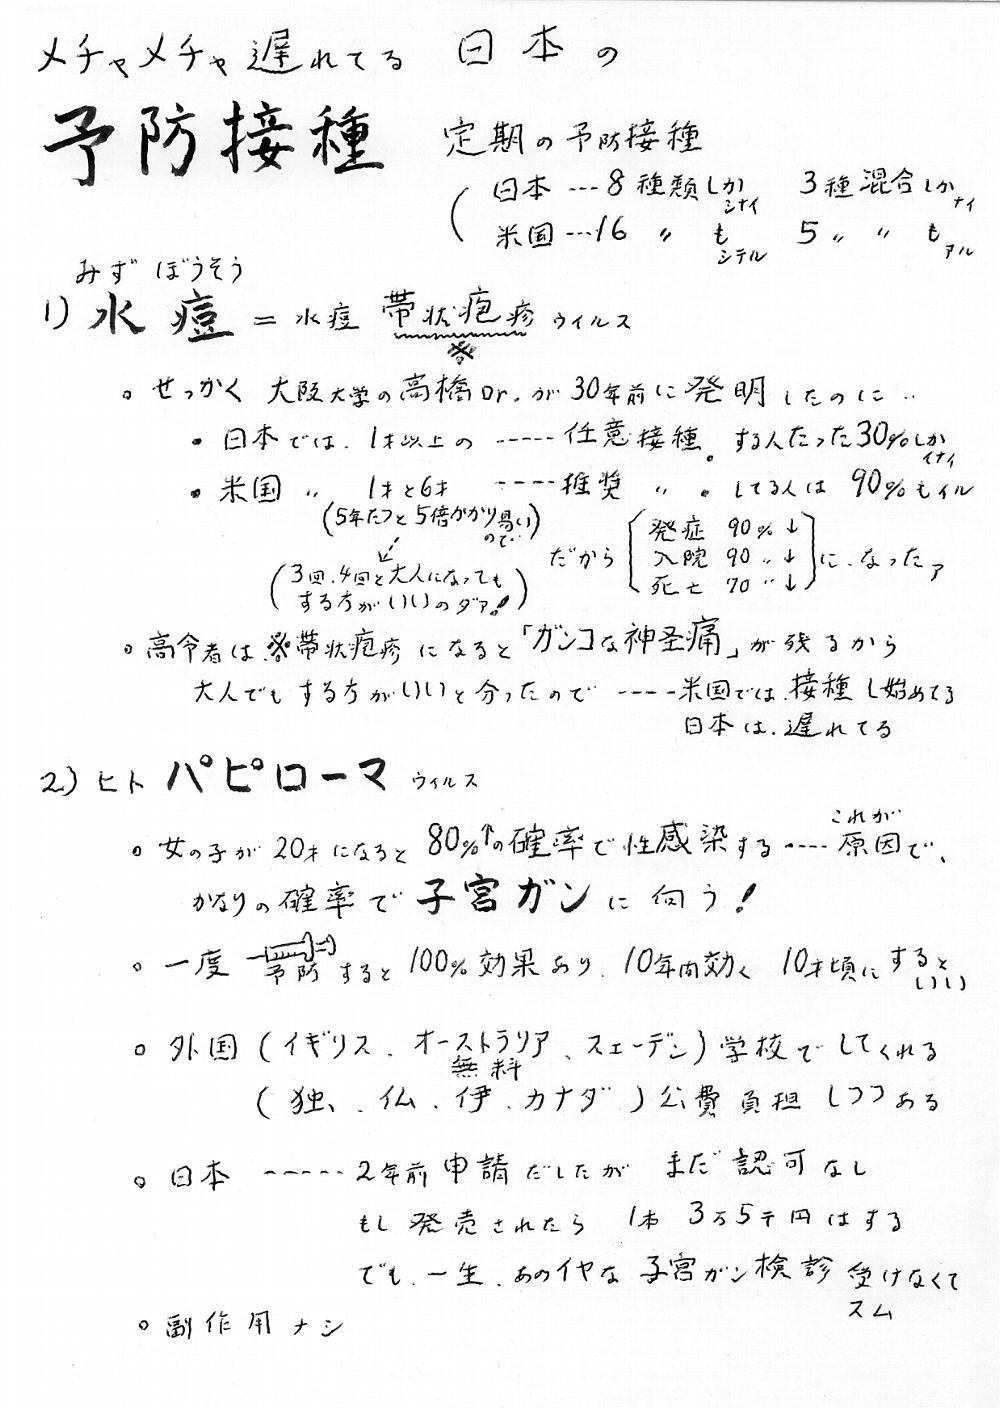 メチャメチャ遅れてる 日本の
予防接種 定期の予防接種
日本 ---8種類しかシナイ 3種混合しかナイ
米国 ---16 〃 もシテル 5〃 〃 もアル
みずぼうそう
1) 水痘 = 水痘 帯状疱疹 ウイルス
※
。せっかく 大阪大学の高橋Dr.が30年前に発明したのに‥
・日本では、1才以上の -----任意接種。する人たった30%しかイナイ
・米国 〃 1才と6才 ----推奨 〃 。してる人は 90%もイル
(5年たつと5倍かかり易いので‥)
(3回、4回と大人になっても
する方がいいのダァ!)
だから [発症 90%↓
入院 90〃↓
死亡 70〃↓] に、なったァ
。高令者は、※帯状疱疹になると「ガンコな神圣痛」が残るから
大人でもする方がいいと分ったので ----米国では、接種し始めてる
日本は、遅れてる
2) ヒトパピローマ ウィルス
。女の子が20才になると 80%↑の確率で性感染する----これが原因で、
かなりの確率で子宮ガンに向う!
。一度 予防すると 100%効果あり、10年間効く 10才頃にするといい
。外国 (イギリス、オーストラリア、スェーデン) 学校でしてくれる
無料
(独、仏、伊、カナダ) 公費負担しつつある
。日本 -----2年前申請だしたが まだ認可なし
もし発売されたら 1本 3万5千円はする
でも、一生、あのイヤな 子宮ガン検診 受けなくて
スム
。副作用ナシ